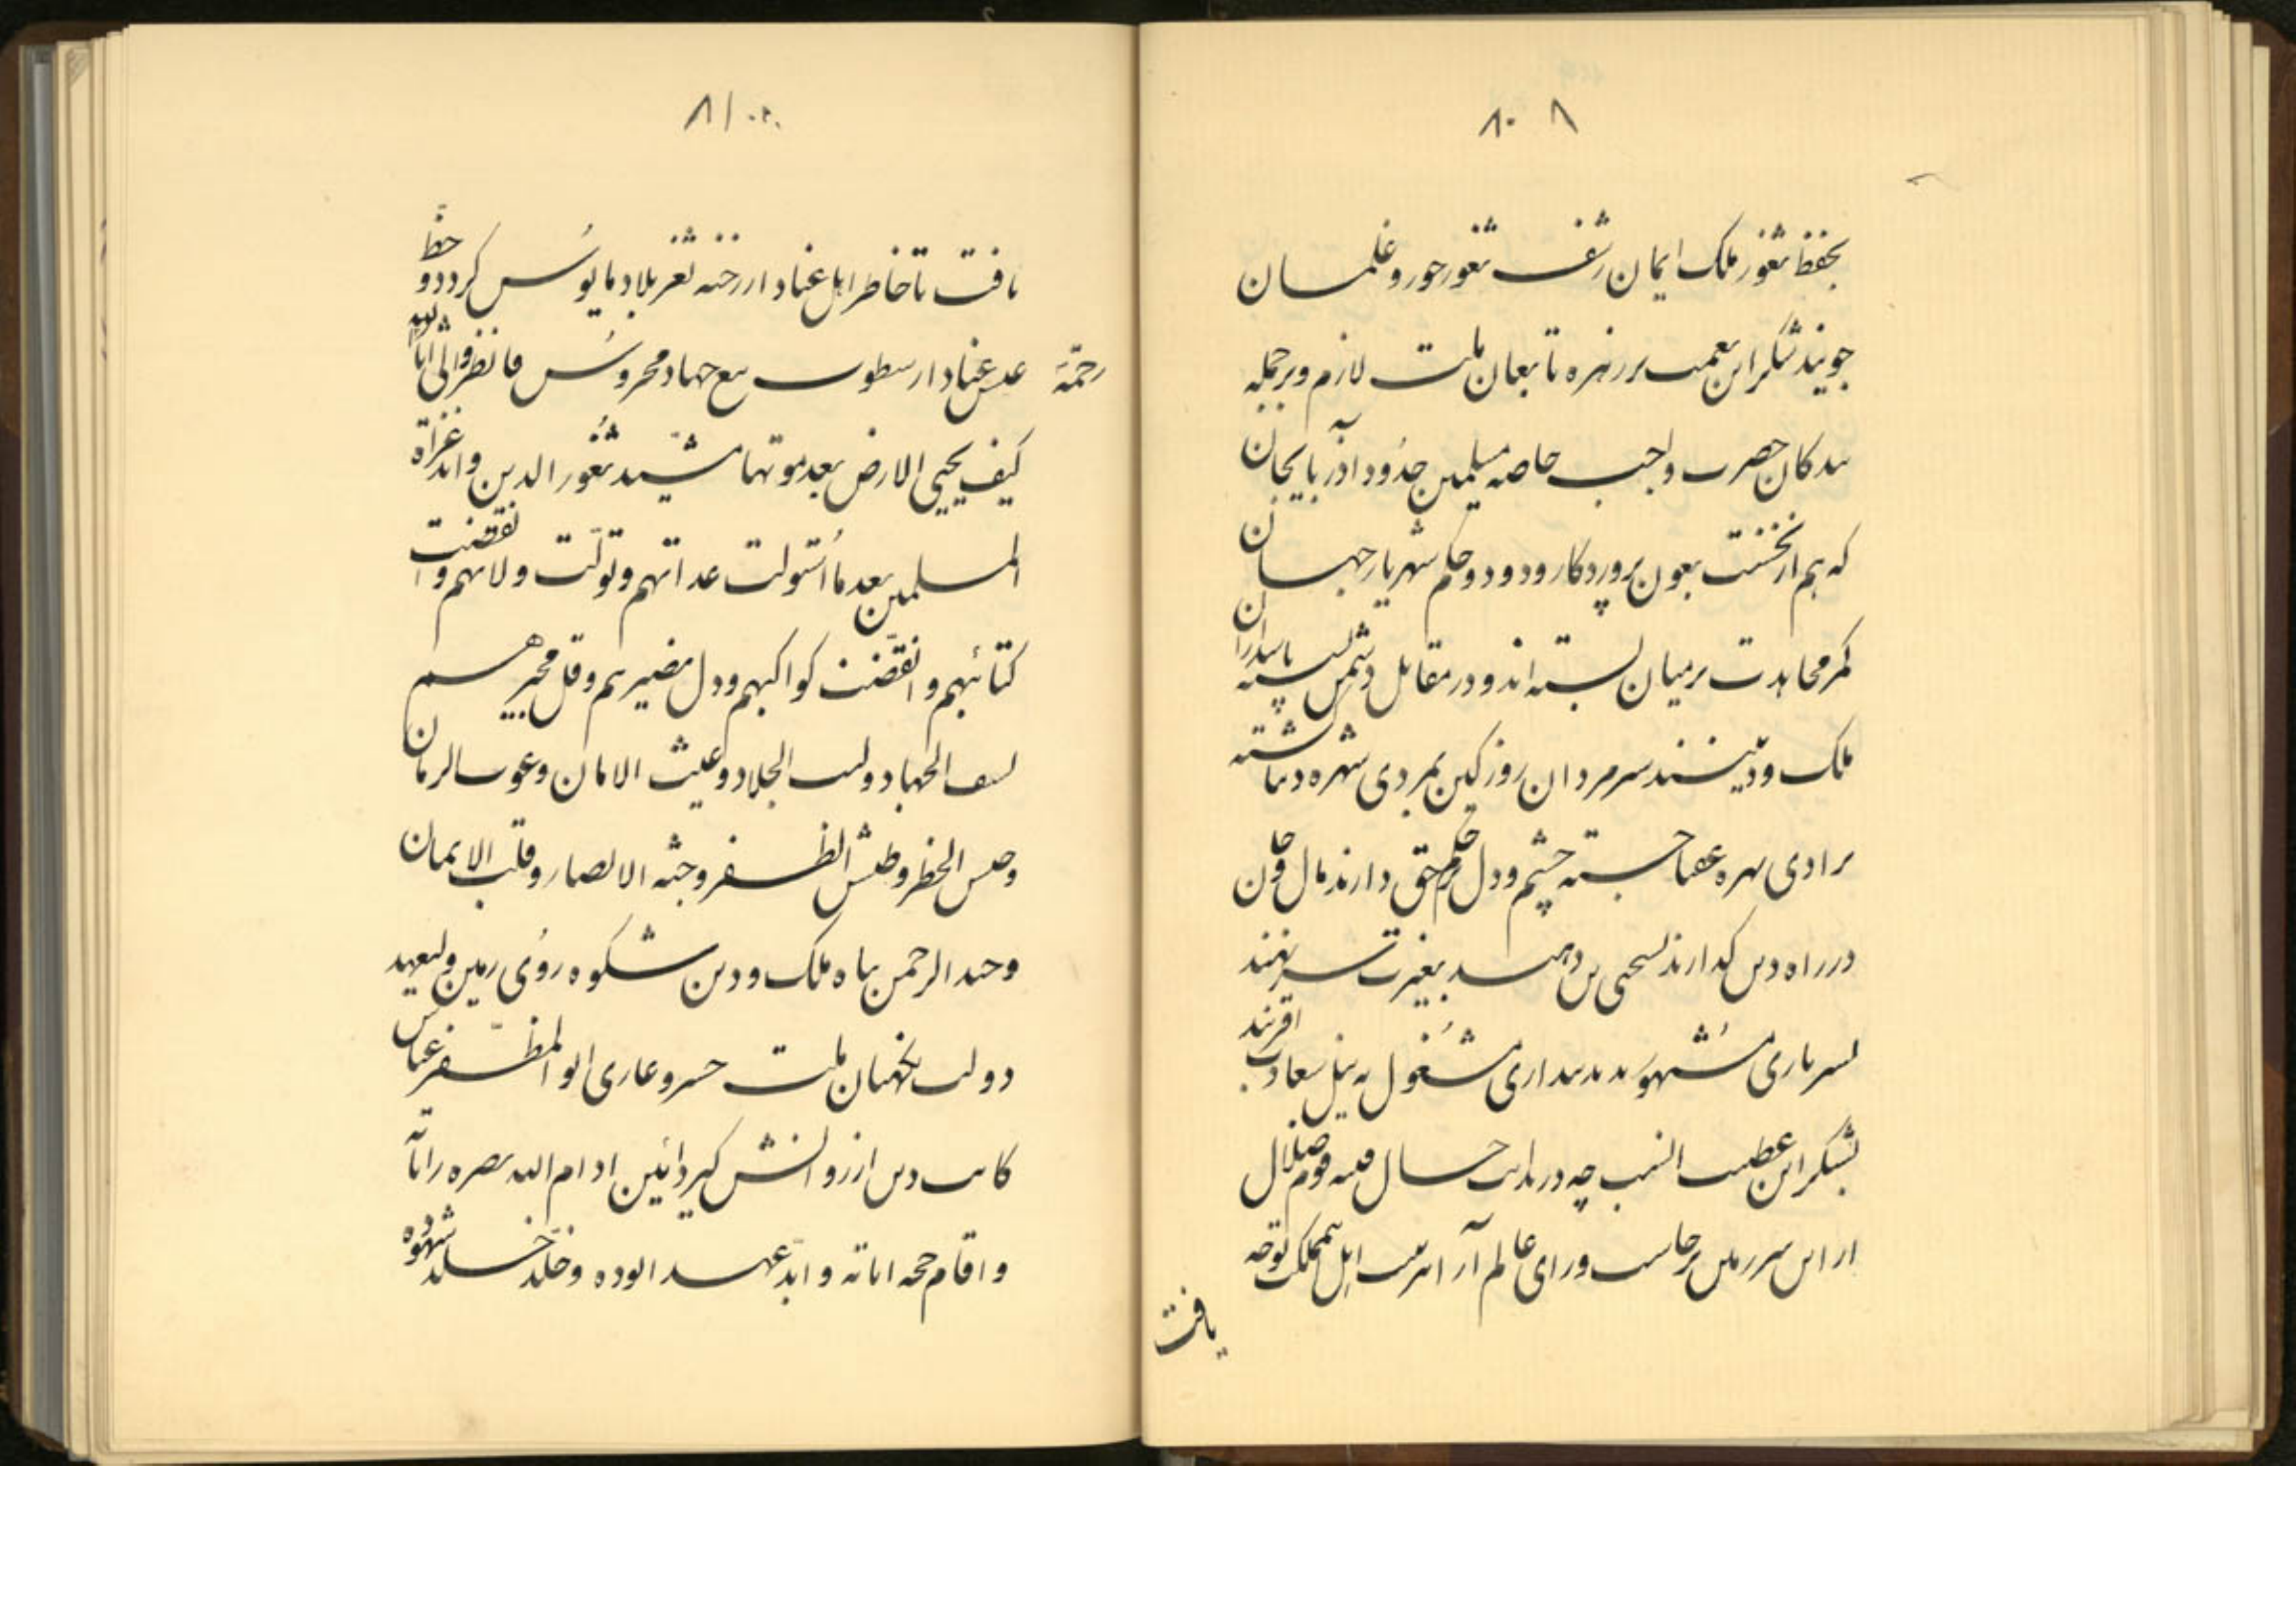 ۸۰ ۸
بحفظ ثغور ملک ایمان رشف ثغور حور و غلمان
جویند شکر این نعمت بر زمره تابعان ملت لازم و بر جمله
بندکان حضرت واجب خاصه مسلمین حدود آذربایجان
که هم از نخست بعون پروردکار ودود و حکم شهریار جهان
کمر مجاهدت بر میان بسته اند و در مقابل دشمن پاسداران
ملک و دینند سر مردان روز کین بمردی شهره
برادی بهره عقبا جسته چشم و دل حکم حق دارند مال و جان
در راه دین کذارند دهند بغیرت سر نهند
بسربازی مشهور بدینداری مشغول به نیل سعادت
بشکر این عطیت انسب چه در بدایت حال فتنه قوم ضلال
از این سرزمین برخاست و رای عالم آرا اهل مملکت توجه
یافت
۸۱
یافت تا خاطر اهل عناد از رخنه ثغر بلاد مایوس کردد و حظ
عیش عباد از سطوت تیغ جهاد محروس فانظر الی آثار رحمة الله
کیف یحیی الارض بعد موتها مشید ثغور الدین و غزاة
المسلمین بعد ما استولت عداتهم و تولت ولاتهم و انقضت
کتائبهم و انقضت کواکبهم و ذل نصیرهم و قل مجیرهم
سیف الجهاد و لیث الجلاد و غیث الامان و غوث الزمان
الخطر و الظفر و الانصار و قلب الایمان
و جند الرحمن پناه ملک و دین شکوه روی زمین ولیعهد
دولت نکهبان ملت خسرو غازی ابو المظفر عباس
کایت دین از روانش کیرد آئین ادام الله نصره
و اقام حجة ایاته و ابد عهد و خلد شهوده